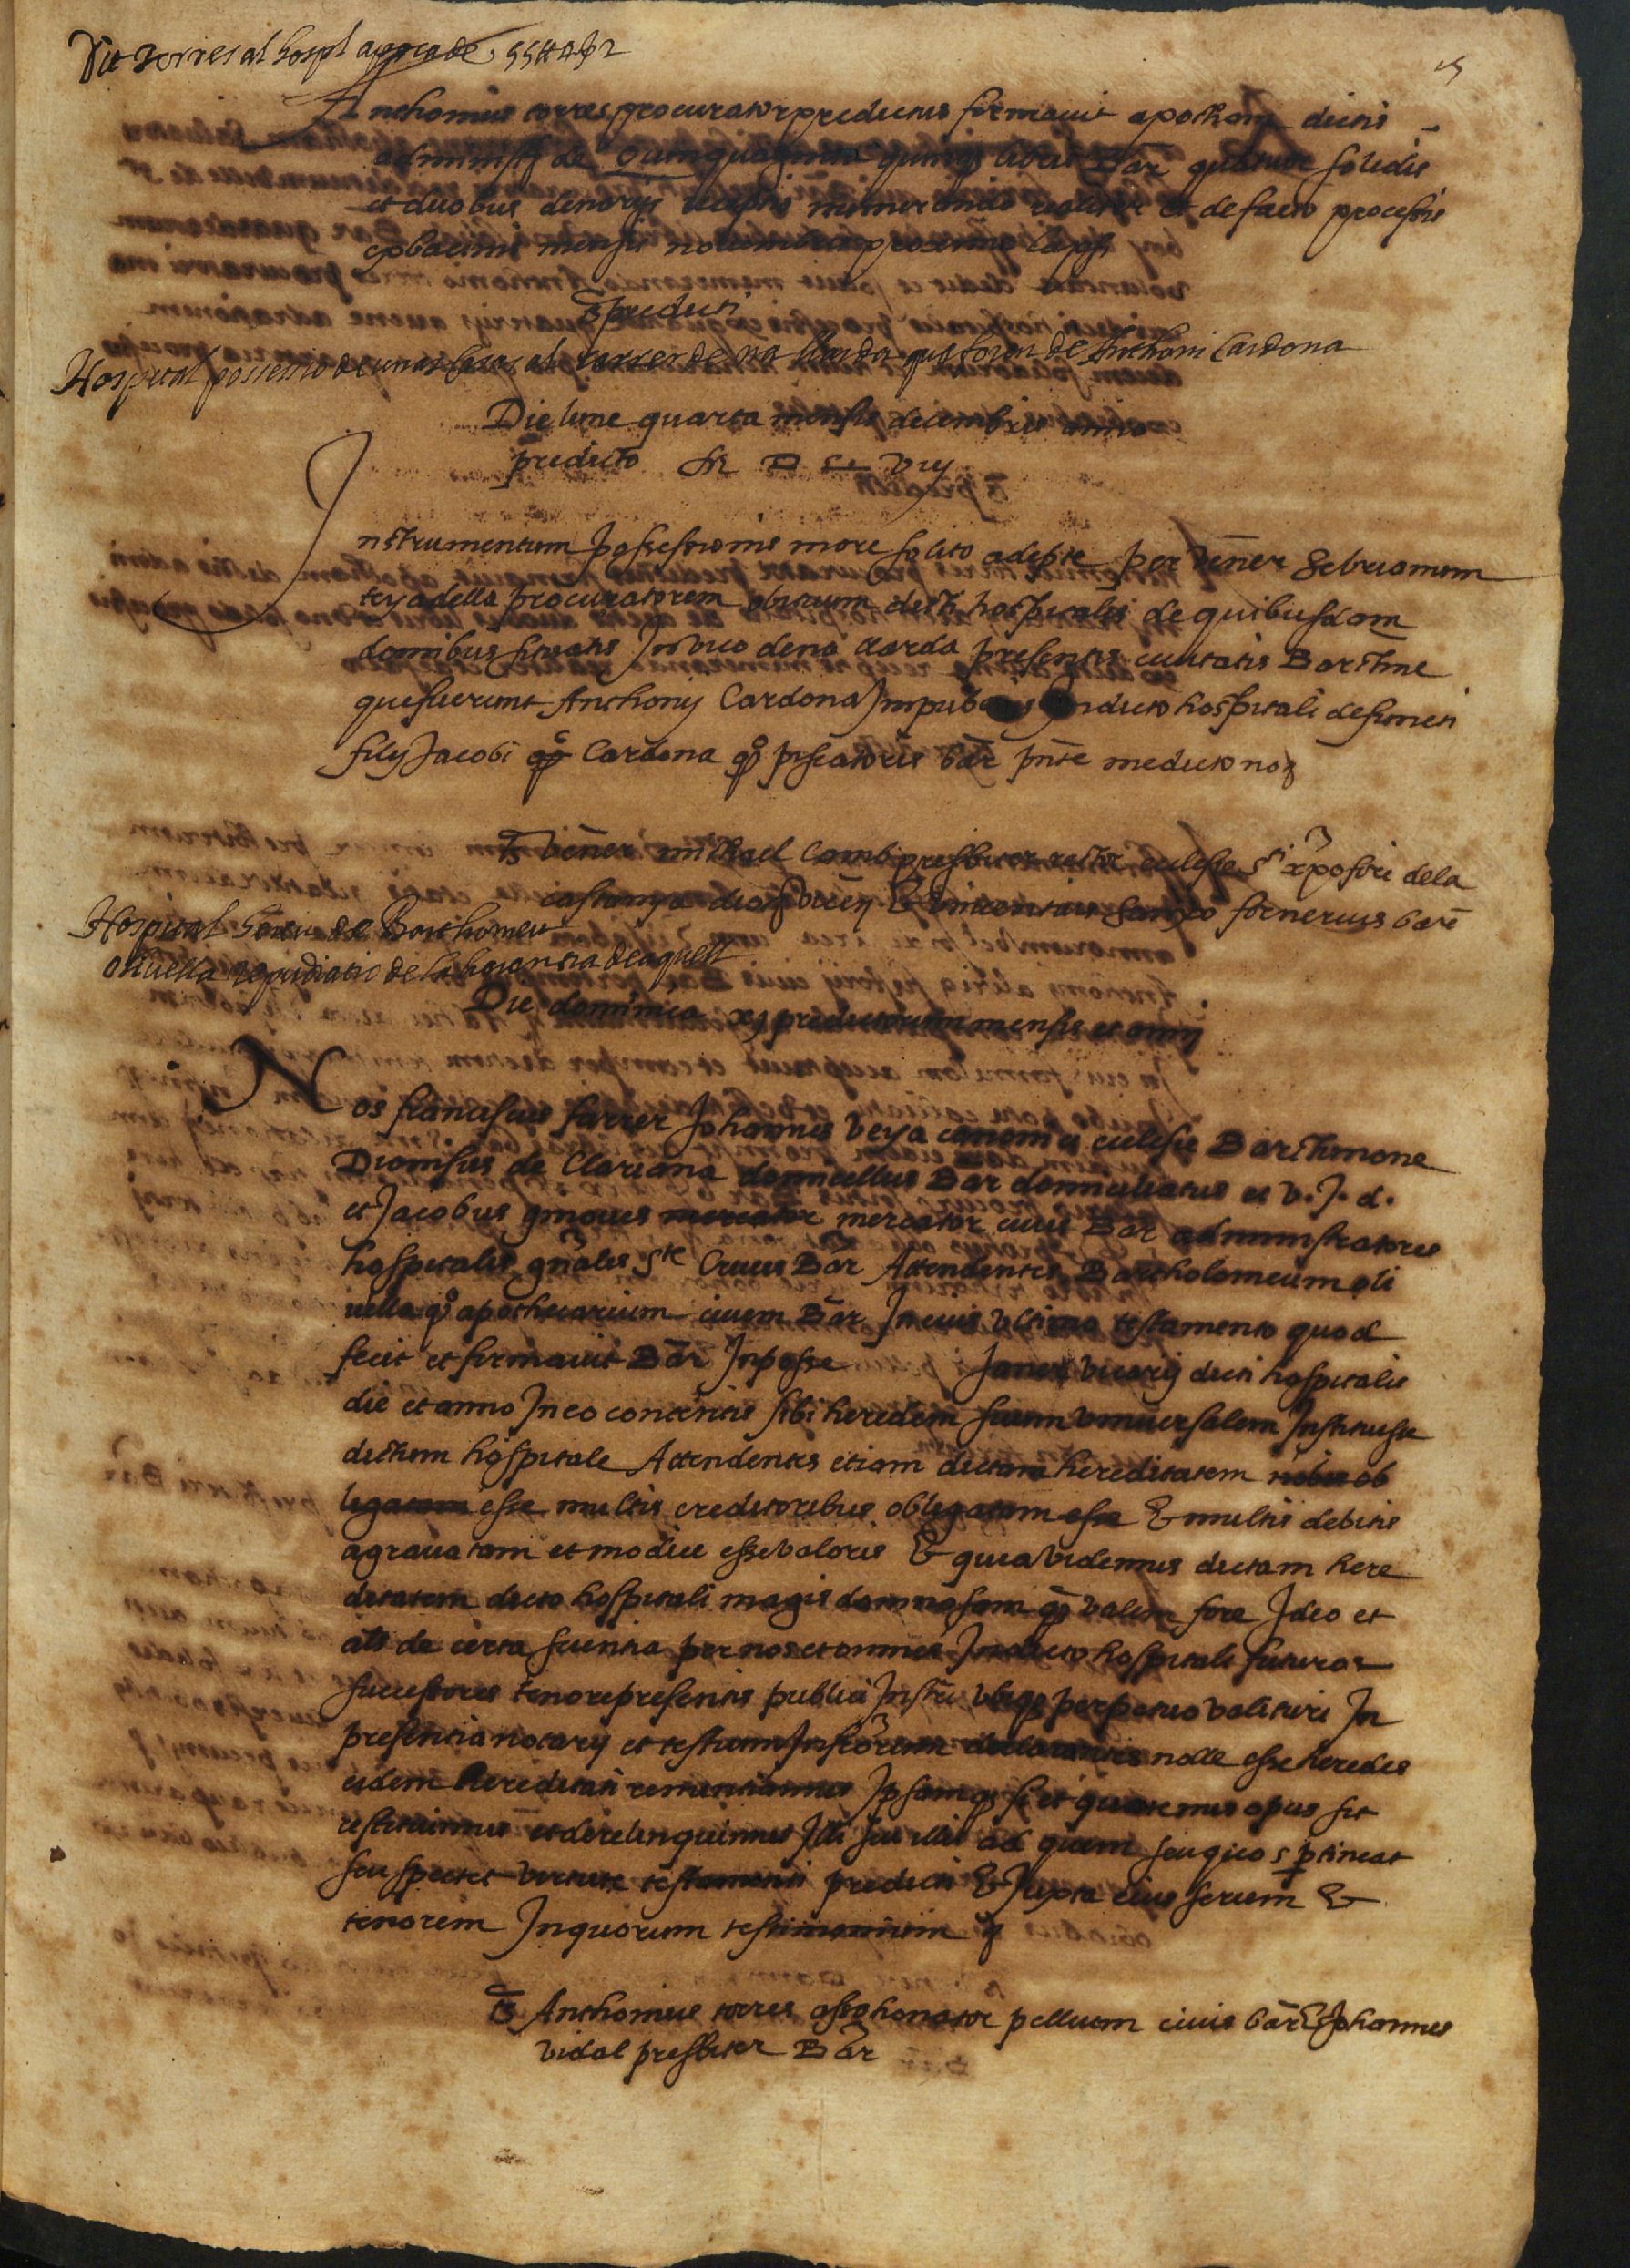 Dit torres al hospl apoca de 55 ℔ 4 ẜ 2
15
Anthonius torres procurator predictus formauit apocham dictis
administ de Quinquaginta quinqȝ libris Bar quatuor solidis
et duobus denarijs receptis numerando realiter et de facto processis
ex bacinis mensis nouembris proxime lapsi
Ts predicti
Hospital possessio de unas casas al carrer de na Darda que foren de Anthoni Cardona
Die lune quarta mensis decembris anno
predicto M D xL vij
Instrumentum possessionis more solito adepte per vener Sebrianum
teyadella procuratorem dicti hospitalis de quibusdam
domibus sitiatis In vico dena darda presentis ciuitatis Barchne
que fuerunt Anthonij Cardona Impuberis In dicto hospitali defuncti
filij Jacobi qo Cardona qo piscatoris bar pnte me dicto noȝ
Ts vener michael Camb presbiter rector ecclesie sti xpofori dela
castanya dioȝ vicen & vincentius fornerius bar
Hospital hereu de Barthomeu
oliuella repudiatio de la herentia de aquell
Die dominica xj predictorum mensis et anni
Nos franciscus ferrer Johannes veya canonici ecclesie Barchinone
Dionisius de Clariana domicellus Bar domiciliatus et v. J. d.
et Jacobus ginoues mercator mercator ciuis Bar administratores
hospitalis gnalis Ste Crucis Bar Attendentes Bartholomeum oli
uella qo apothecarium ciuem Bar In eius vltimo testamento quod
fecit et firmauit Bar In posse Janer vicarij dicti hospitalis
die et anno In eo contentis sibi heredem suum vniuersalem Instituisse
dictum hospitale Attendentes etiam dictam hereditatem nobis ob
ligatam esse multis creditoribus obligatam esse & multis debitis
agrauatam et modici esse valoris & quia videmus dictam here
ditatem dicto hospitali magis damnosam qȝ valem fore Ideo et
als de certa scientia per nos et omnes In dicto hospitali futuros
successores tenore presentis publici Instri vbiqȝ perpetuo valituri In
presentia notarij et testium Infrorum declarantes nolle esse heredes
eidem hereditati renunciamus Ipsamqȝ si et quatenus opus sit
restituimus et derelinquimus Illi seu illis ad quem seu quos ptineat
seu spectet virtute testamenti predicti & Juxta eius seriem &
tenorem In quorum testimonium ȝ
Ts Anthonius torres assahonator pellium ciuis bar & Johannes
vidal presbiter Bar